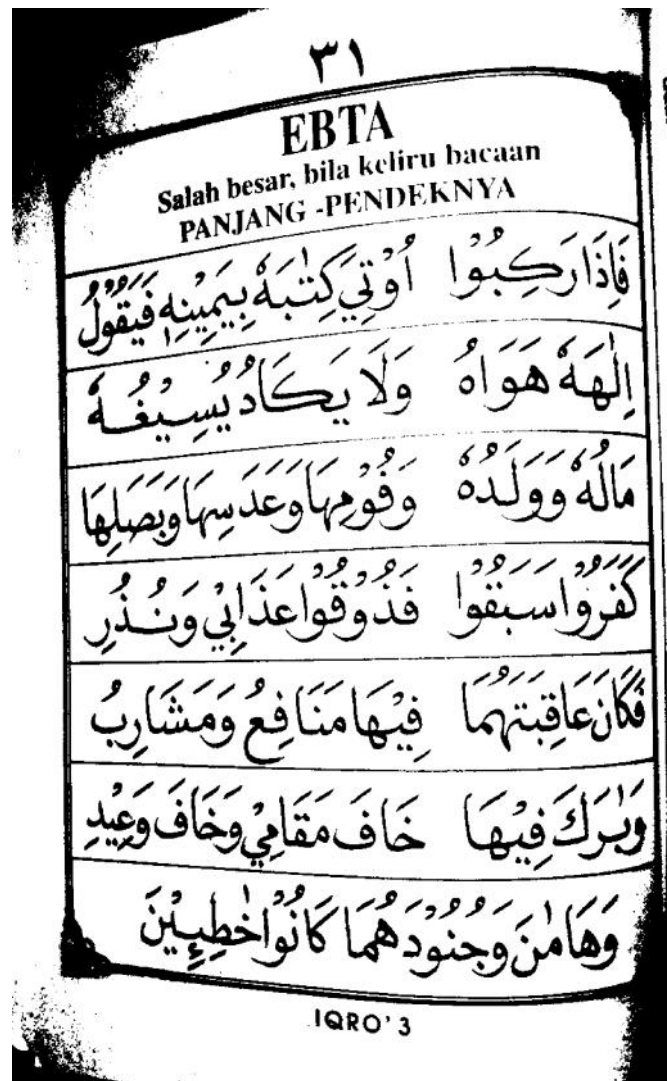 ٣١
EBTA
Salah besar, bila keliru bacaan
PANJANG -PENDEKNYA
فَإِذَا رَكِبُوْا اُوْتِيَ كِتٰبَهٗ بِيَمِيْنِهٖ فَيَقُوْلُ
اِلٰهَهٗ هَوَاهُ وَلَا يَكَادُ يُسِيْغُهٗ
مَالُهٗ وَوَلَدُهٗ وَفُوْمِهَا وَعَدَسِهَا وَبَصَلِهَا
كَفَرُوْا سَبَقُوْا فَذُوْقُوْا عَذَابِيْ وَنُذُرِ
فَكَانَ عَاقِبَتَهُمَا فِيْهَا مَنَافِعُ وَمَشَارِبُ
وَبٰرَكَ فِيْهَا خَافَ مَقَامِيْ وَخَافَ وَعِيْدِ
وَهَامٰنَ وَجُنُوْدَهُمَا كَانُوْا خٰطِـِٕيْنَ
IQRO' 3